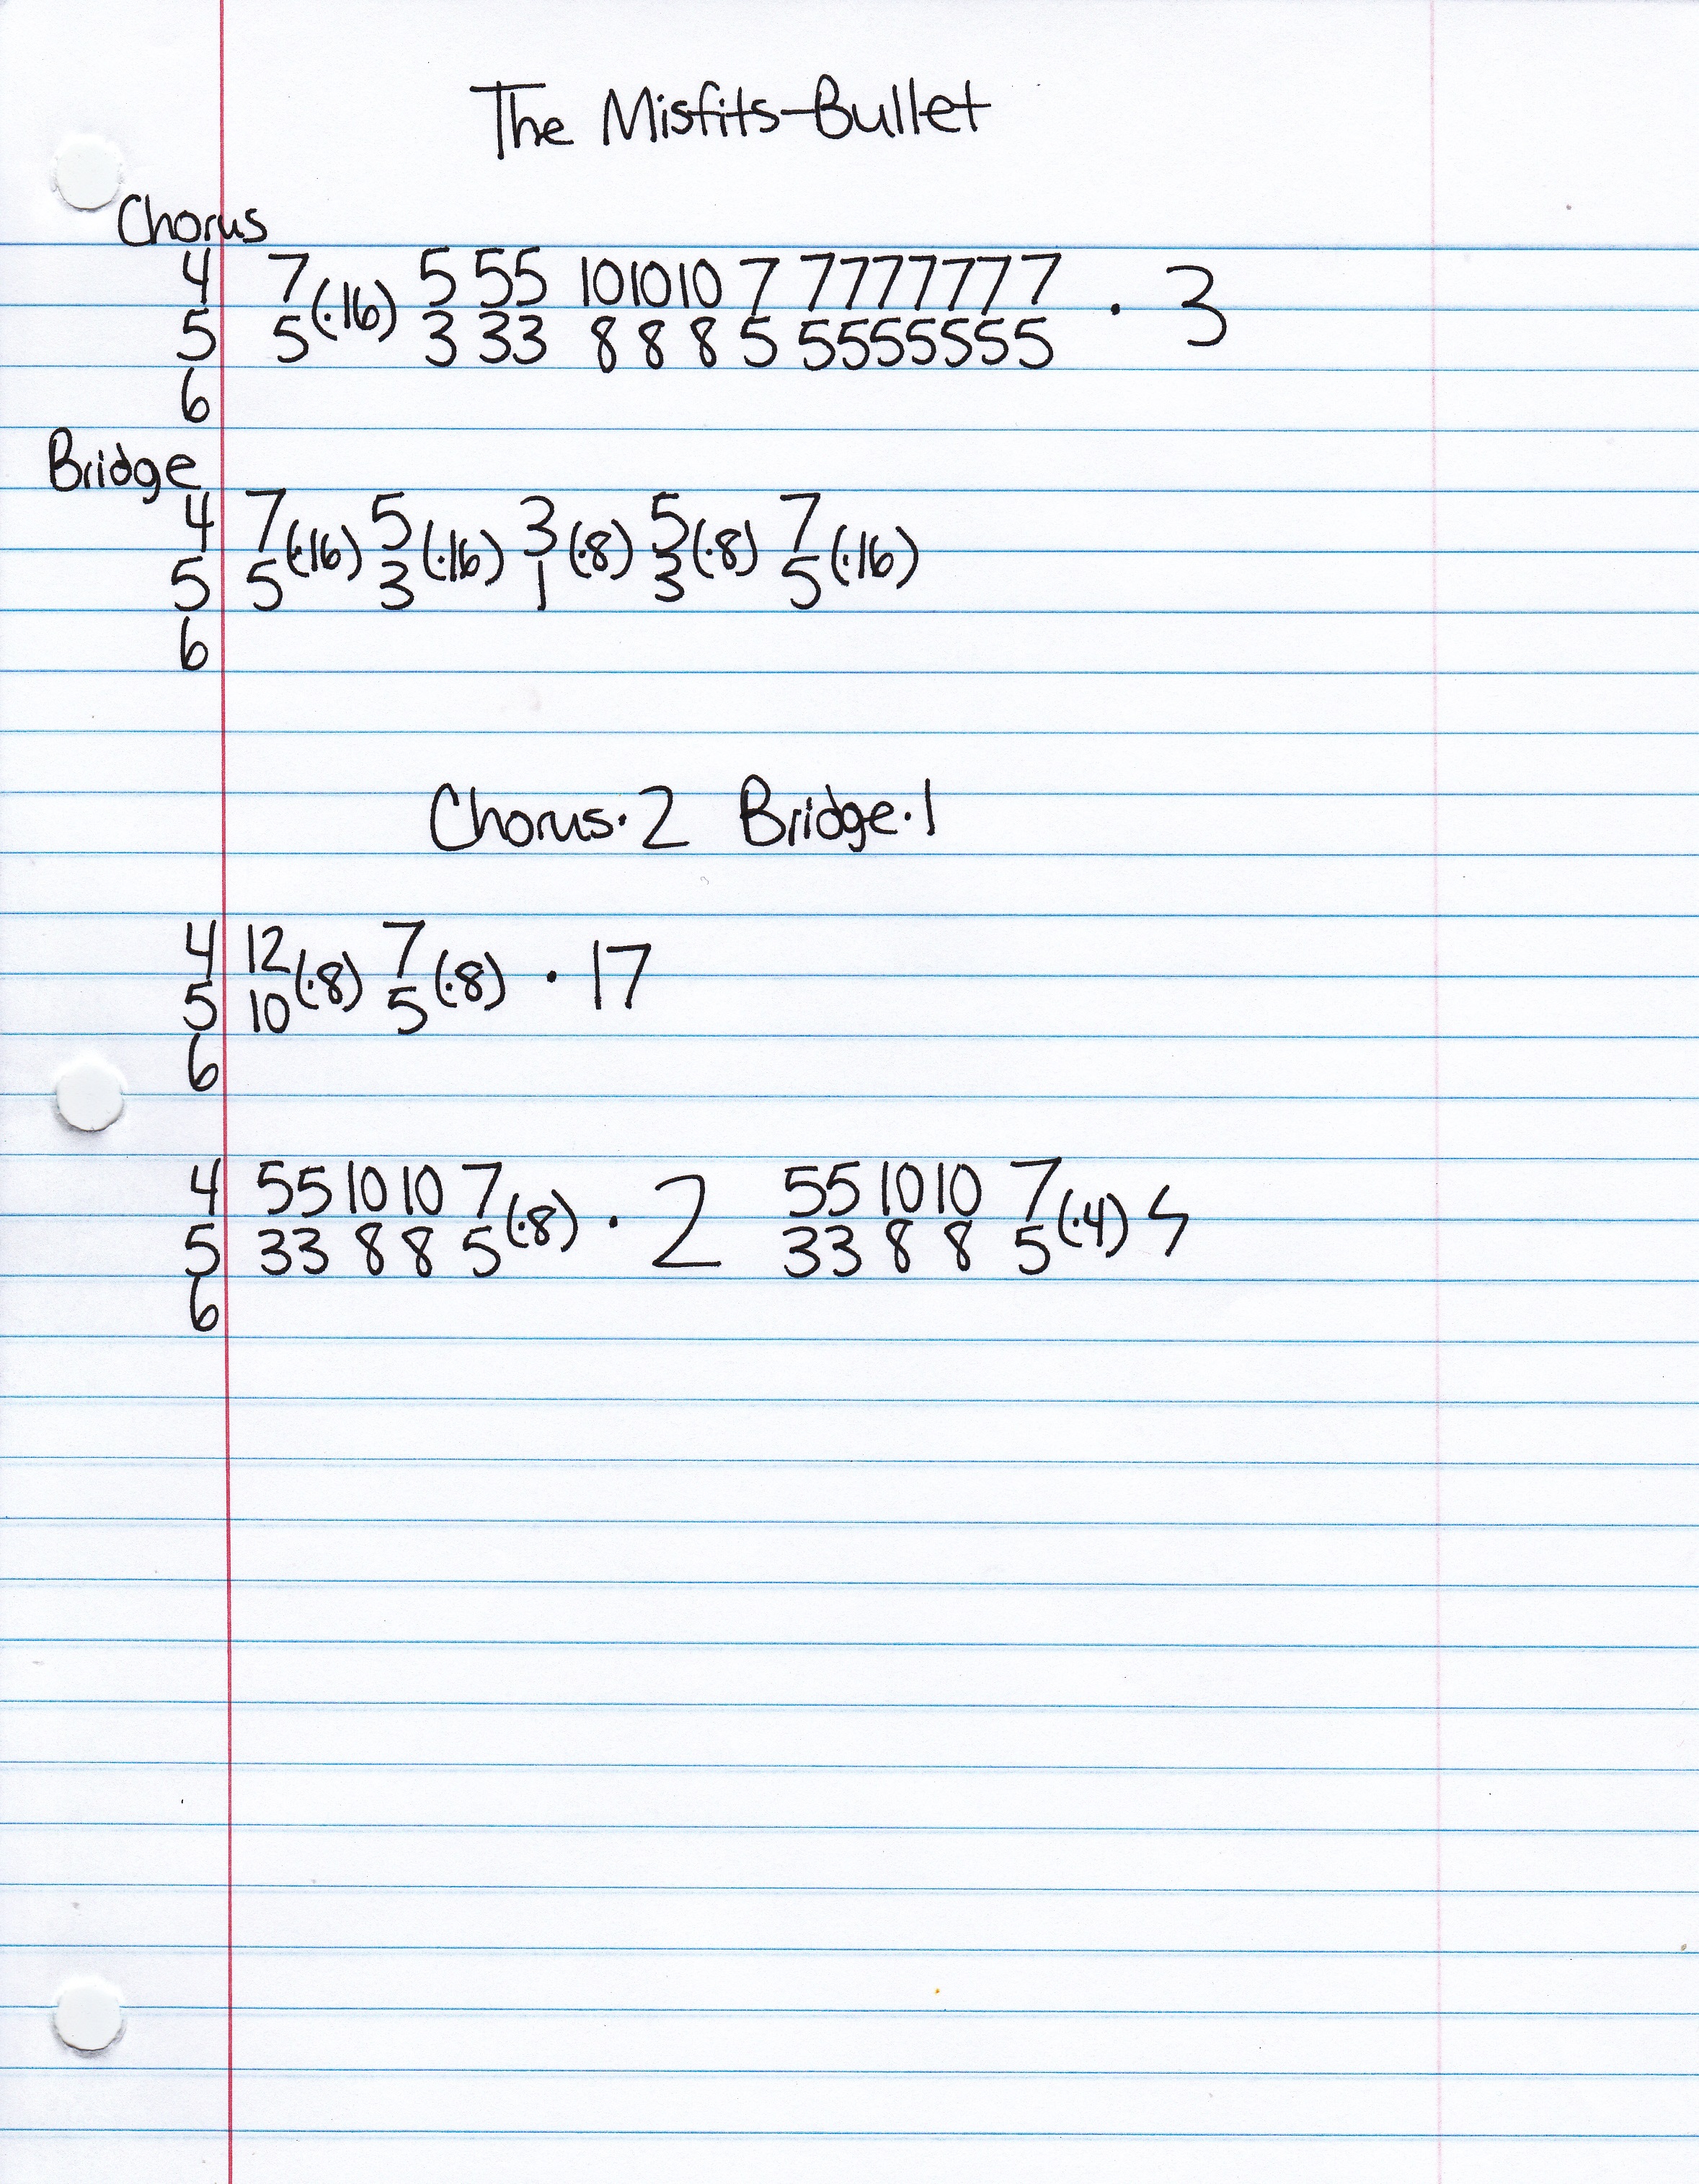 The Misfits-Bullet
Chorus
4 7 5 55 10 10 10 7 7777777
(·16) · 3
5 5 3 33 8 8 8 5 5555555
6
Bridge
4 7 5 3 5 7
(·16) (·16) (·8) (·8) (·16)
5 5 3 1 3 5
6
Chorus·2 Bridge·1
4 12 7
(·8) (·8) · 17
5 10 5
6
4 55 10 10 7 55 10 10 7
(·8) · 2 (·4)
5 33 8 8 5 33 8 8 5
6